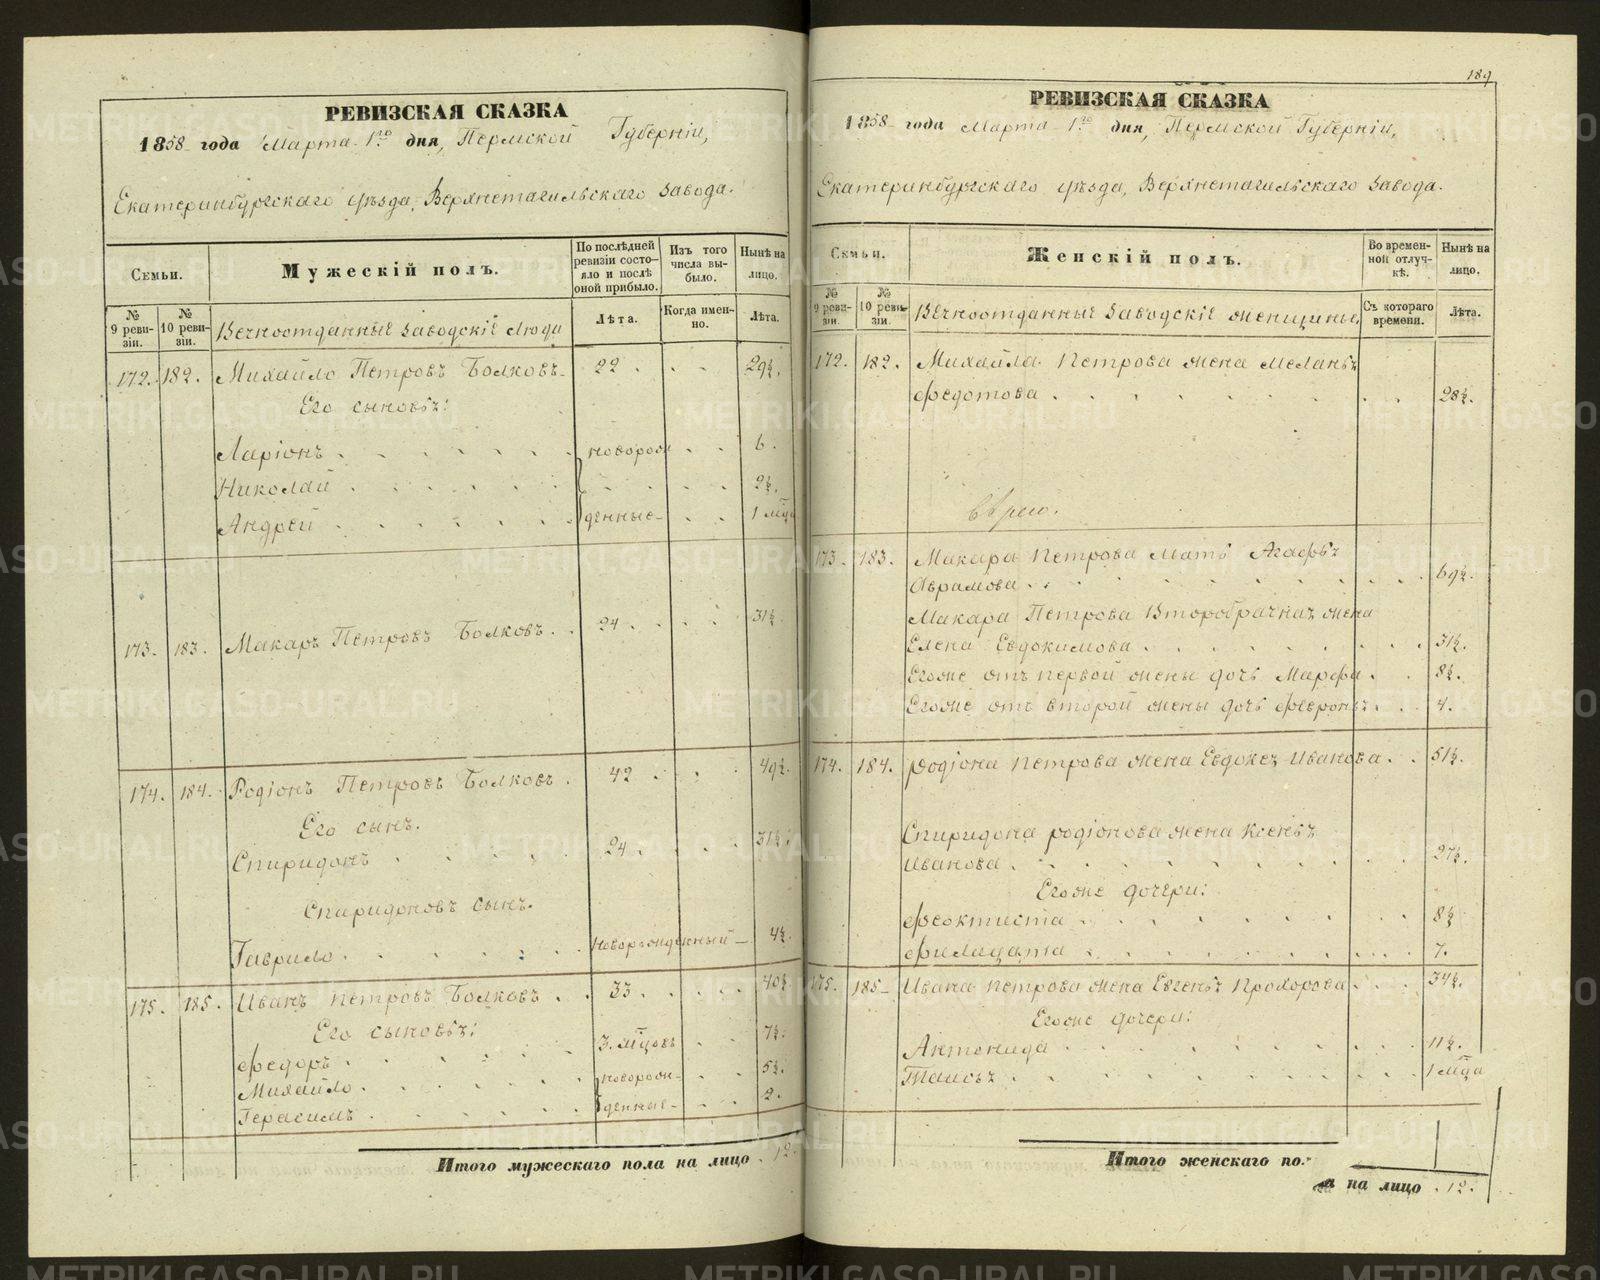 РЕВИЗСКАЯ СКАЗКА
1858 года Марта 1го дня, Пермской Губерніи,
Екатеринбургскаго уѣзда, Верхнетагильскаго завода.
Семьи.
Мужескій полъ.
По послѣдней ревизіи состояло и послѣ оной прибыло.
Изъ того числа выбыло.
Нынѣ на лицо.
№ 9 ревизіи.
№ 10 ревизіи.
Вечноотданные заводскіе люди
Лѣта.
Когда именно.
Лѣта.
172. 182. Михайло Петровъ Волковъ 22 . . . 29½.
Его сыновья:
Ларіонъ . новорож . . 6.
Николай . . . 2½.
Андрей . денные . . 1 мца
173. 183. Макаръ Петровъ Волковъ . . 24 . . . 31½
174. 184. Родіонъ Петровъ Волковъ . 42 . . . 49½.
Его сынъ.
Спиридонъ . 24 . . . 31½.
Спиридоновъ сынъ.
Гаврило . новорожденный 4½.
175. 185. Иванъ Петровъ Волковъ . . 33 . . . 40½
Его сыновья:
Федоръ . 3. мцовъ . . 7½.
Михайло . новорож- . . 5½.
Герасимъ . денные . . 2.
Итого мужескаго пола на лицо . 12.
189
РЕВИЗСКАЯ СКАЗКА
1858 года Марта 1го дня, Пермской Губерніи,
Екатеринбургскаго уѣзда, Верхнетагильскаго завода.
Семьи.
Женскій полъ.
Во временной отлучкѣ.
Нынѣ на лицо.
№ 9 ревизіи.
№ 10 ревизіи.
Вечноотданные заводскіе женщины.
Съ котораго времени.
Лѣта.
172. 182. Михайла Петрова жена Меланья
Федотова . 28½.
173. 183. Макара Петрова мать Агафья
Аврамова . 69½.
Макара Петрова второбрачная жена
Елена Евдокимова . 31½.
Егоже отъ первой жены дочь Марфа . 8½.
Егоже отъ второй жены дочь Февронья . 4.
174. 184. Родіона Петрова жена Евдокея Иванова . . 51½.
Спиридона Родіонова жена Ксенья
Иванова . 27½.
Егоже дочери:
Феоктиста . 8½
Филицата . 7.
175. 185. Ивана Петрова жена Евгенья Прохорова . 34½.
Егоже дочери:
Антонида . 11½.
Таисья . 1 мца
Итого женскаго по.
а на лицо . 12.
METRIKI.GASO-URAL.RU